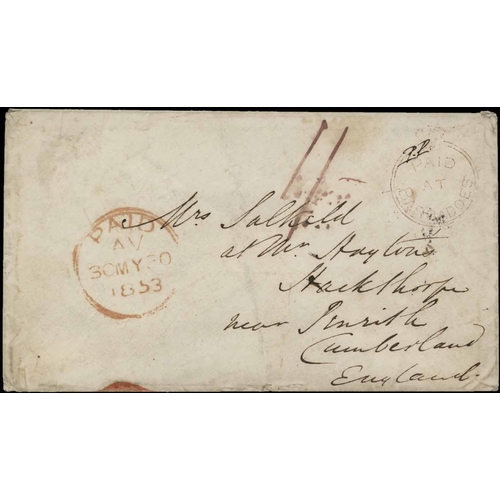 PAID
AT
PAID
AV
30MY30
1853
Mrs Salkeld
at Mr. Hayton's
Hackthorpe
near Penrith
Cumberland
England.